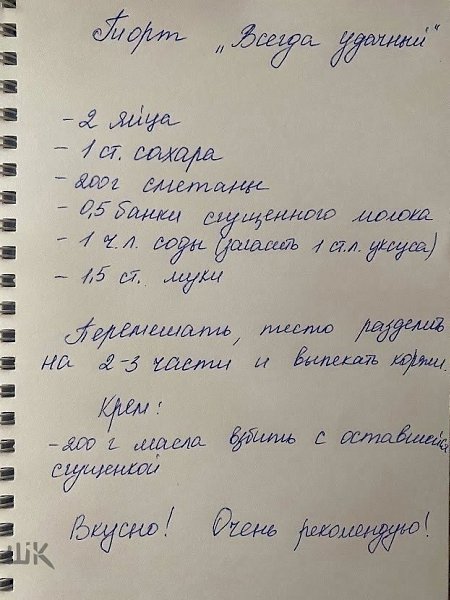 Торт „Всегда удачный"
- 2 яйца
- 1 ст. сахара
- 200г сметаны
- 0,5 банки сгущенного молока
- 1 ч.л. соды (загасить 1 ст.л. уксуса)
- 1,5 ст. муки
Перемешать, тесто разделить
на 2-3 части и выпекать коржи.
Крем:
- 200 г масла взбить с оставшейся
сгущенкой
Вкусно! Очень рекомендую!
ШК